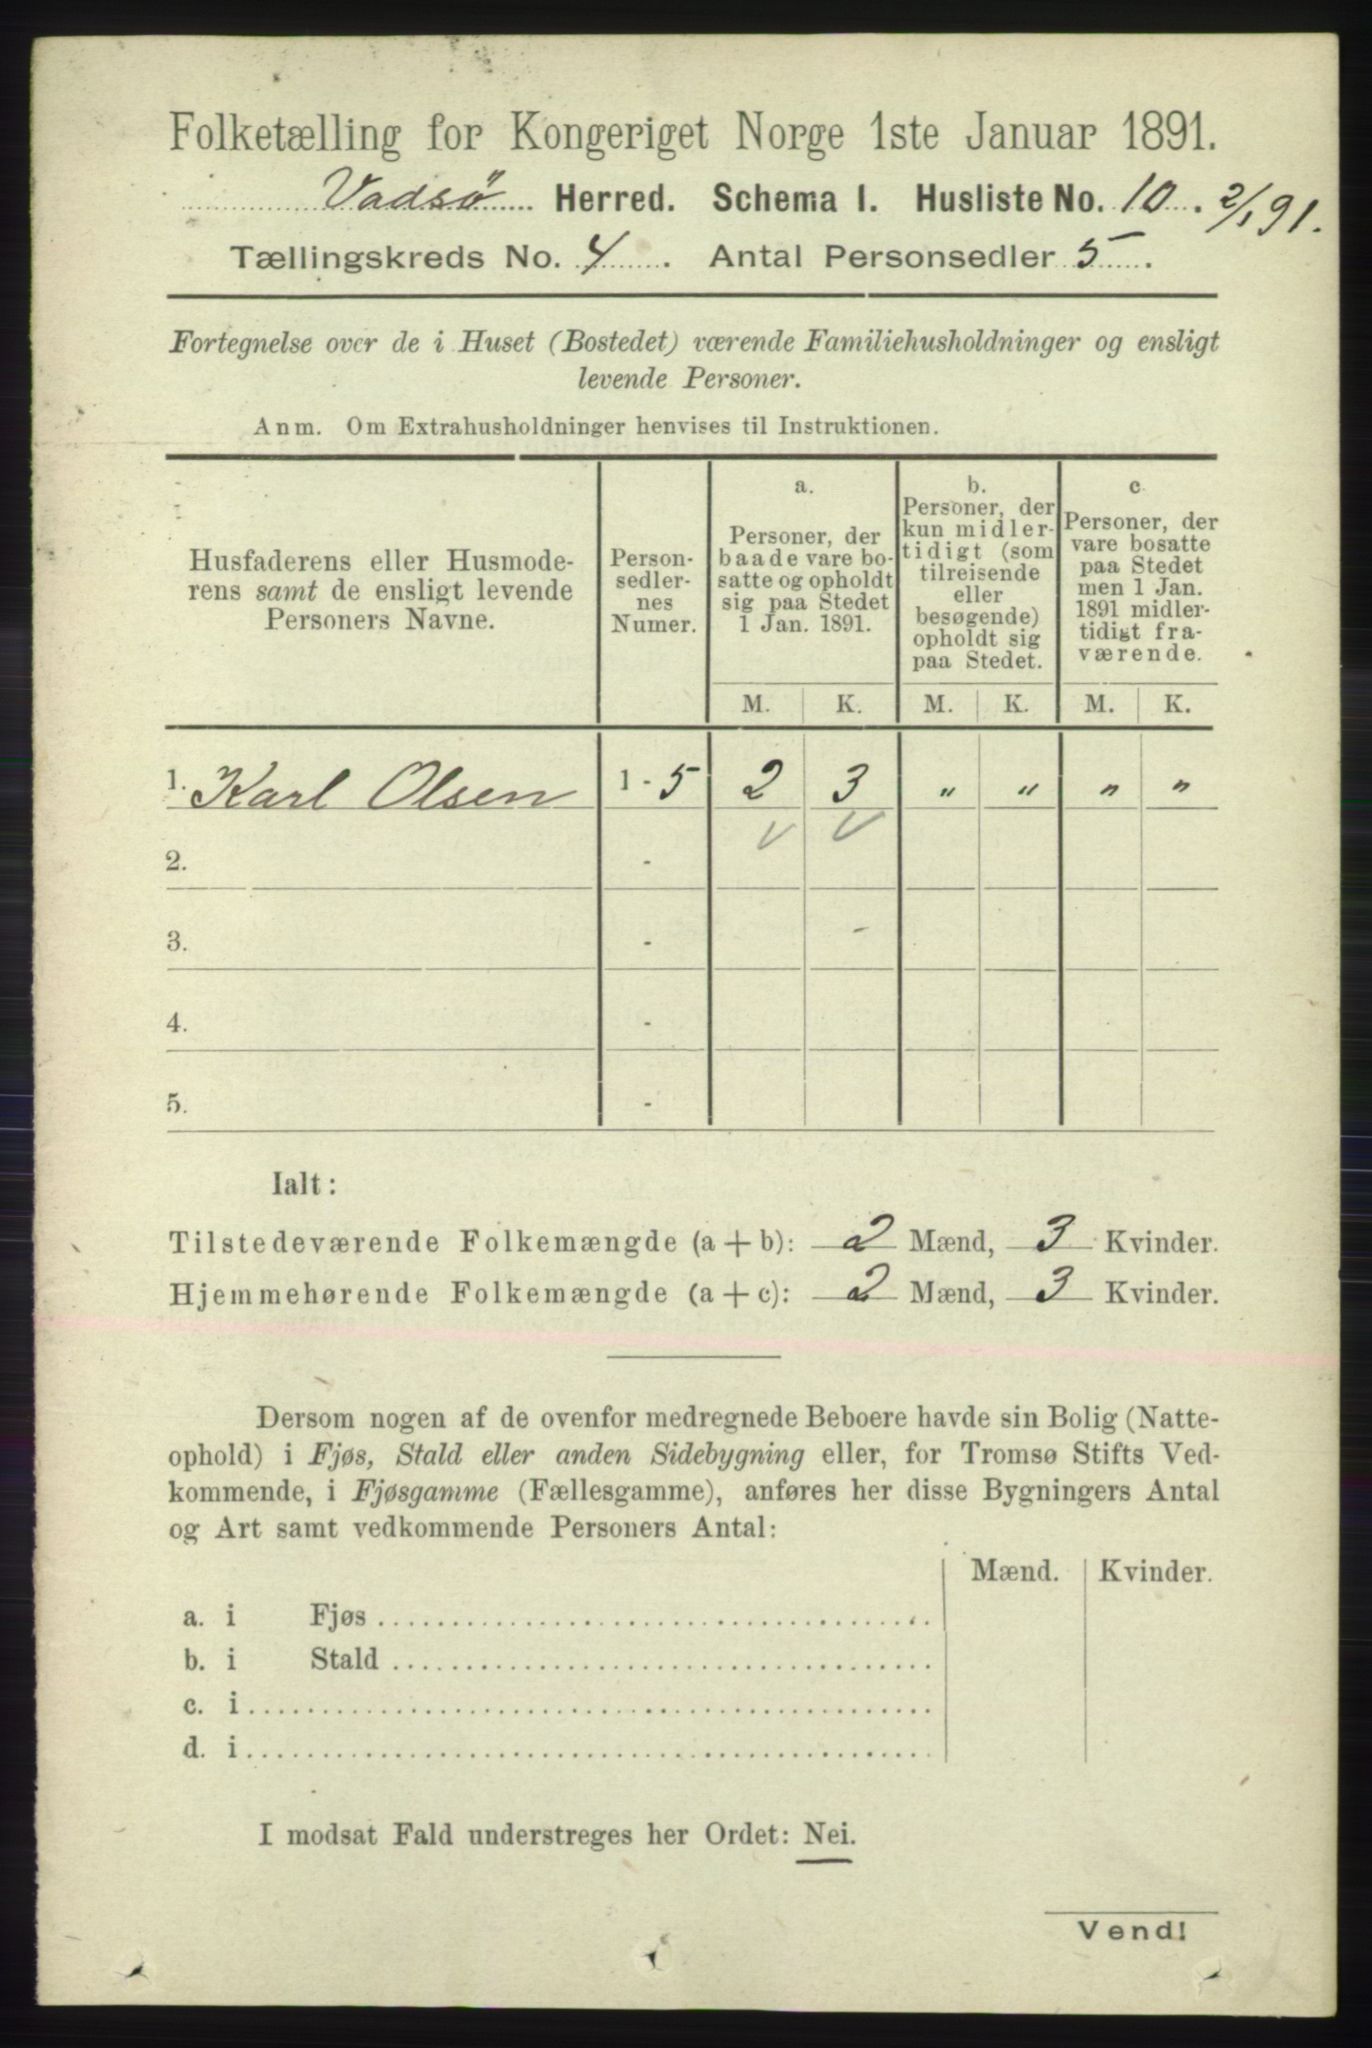 Folketælling for Kongeriget Norge 1ste Januar 1891.
Vadsø Herred. Schema I. Husliste No. 10. 2/1 91.
Tællingskreds No. 4. Antal Personsedler 5.
Fortegnelse over de i Huset (Bostedet) værende Familiehusholdninger og ensligt
levende Personer.
Anm. Om Extrahusholdninger henvises til Instruktionen.
Husfaderens eller Husmode-
rens samt de ensligt levende
Personers Navne.
Person-
sedler-
nes
Numer.
a.
Personer, der
baade vare bo-
satte og opholdt
sig paa Stedet
1 Jan. 1891.
b.
Personer, der
kun midler-
tidigt (som
tilreisende
eller
besøgende)
opholdt sig
paa Stedet.
c.
Personer, der
vare bosatte
paa Stedet
men 1 Jan.
1891 midler-
tidigt fra-
værende.
M. K. M. K. M. K.
1. Karl Olsen 1 - 5 2 3 " " " "
2. -
3. -
4. -
5. -
Ialt:
Tilstedeværende Folkemængde (a + b): 2 Mænd, 3 Kvinder.
Hjemmehørende Folkemængde (a + c): 2 Mænd, 3 Kvinder.
Dersom nogen af de ovenfor medregnede Beboere havde sin Bolig (Natte-
ophold) i Fjøs, Stald eller anden Sidebygning eller, for Tromsø Stifts Ved-
kommende, i Fjøsgamme (Fællesgamme), anføres her disse Bygningers Antal
og Art samt vedkommende Personers Antal:
Mænd. Kvinder.
a. i Fjøs
b. i Stald
c. i
d. i
I modsat Fald understreges her Ordet: Nei.
Vend!